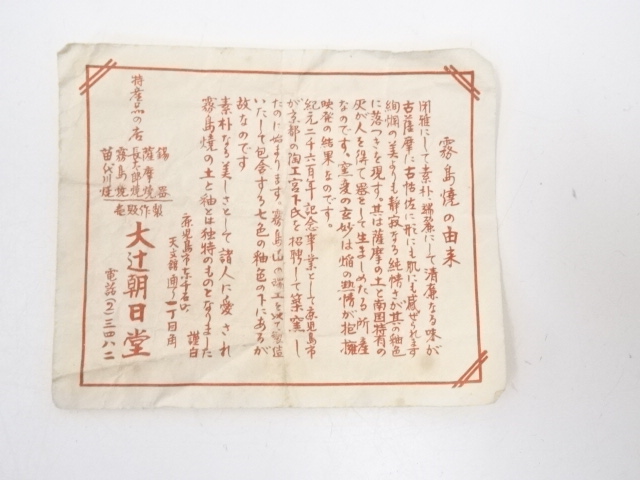 霧島焼の由来
閑雅にして素朴、端麗にして清廉なる味が
古薩摩に古帖佐に形にも肌にも感ぜられます
絢爛の美よりも静寂なる純情さが其の釉色
に落つきを現す。其は薩摩の土と南国特有の
灰が人を得て器として生ましめたる所産
なのです、窯変の玄妙は焔の熱情が抱擁
映発の結果なのです。
紀元二千六百年記念事業として鹿児島市
が京都の陶工宮下氏を招聘して築窯し
たのに始まります。霧島山の
いたして包含する七色の釉色の下にあるが
故なのです
素朴なる美しさとして諸人に愛され
霧島焼の土と釉とは独特のものとなりました
謹白
鹿児島市東千石町
天文館通り一丁目角
特産品の店
錫器
薩摩焼
長太郎焼
霧島焼
苗代川焼
製作販売
大辻朝日堂
電話(2)三四八二